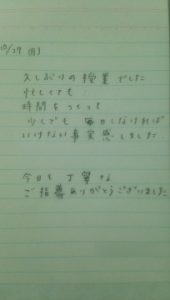 10/29 (月)
久しぶりの授業でした
忙しくても
時間をつくって
少しでも 毎日しなければ
いけない事実感しました.
今日も丁寧な
ご指導ありがとうございました